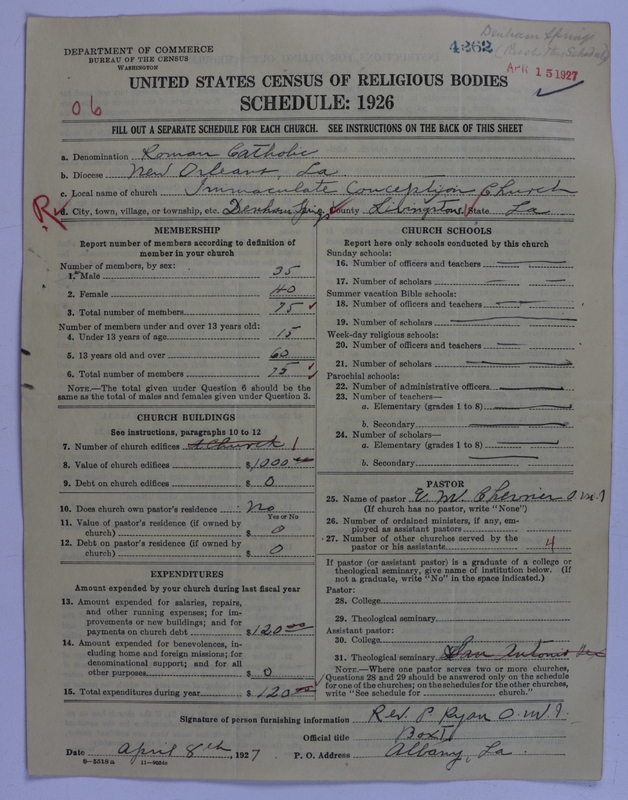 Denham Springs
4262
(Push This Schedule)
APR 15 1927
DEPARTMENT OF COMMERCE
BUREAU OF THE CENSUS
WASHINGTON
UNITED STATES CENSUS OF RELIGIOUS BODIES
SCHEDULE: 1926
06
FILL OUT A SEPARATE SCHEDULE FOR EACH CHURCH. SEE INSTRUCTIONS ON THE BACK OF THIS SHEET
a. Denomination Roman Catholic
b. Diocese New Orleans, La.
c. Local name of church Immaculate Conception Church
d. City, town, village, or township, etc. Denham Springs County Livingston State La
MEMBERSHIP
Report number of members according to definition of
member in your church
Number of members, by sex:
1. Male 35
2. Female 40
3. Total number of members 75
Number of members under and over 13 years old:
4. Under 13 years of age 15
5. 13 years old and over 60
6. Total number of members 75
NOTE.—The total given under Question 6 should be the
same as the total of males and females given under Question 3.
CHURCH BUILDINGS
See instructions, paragraphs 10 to 12
7. Number of church edifices 1 Church 1
8. Value of church edifices $ 1000.00
9. Debt on church edifices $ 0
10. Does church own pastor's residence No
Yes or No
11. Value of pastor's residence (if owned by
church) $ 0
12. Debt on pastor's residence (if owned by
church) $ 0
EXPENDITURES
Amount expended by your church during last fiscal year
13. Amount expended for salaries, repairs,
and other running expenses; for im-
provements or new buildings; and for
payments on church debt $ 120.00
14. Amount expended for benevolences, in-
cluding home and foreign missions; for
denominational support; and for all
other purposes $ 0
15. Total expenditures during year $ 120.00
CHURCH SCHOOLS
Report here only schools conducted by this church
Sunday schools:
16. Number of officers and teachers
17. Number of scholars
Summer vacation Bible schools:
18. Number of officers and teachers
19. Number of scholars
Week-day religious schools:
20. Number of officers and teachers
21. Number of scholars
Parochial schools:
22. Number of administrative officers
23. Number of teachers—
a. Elementary (grades 1 to 8)
b. Secondary
24. Number of scholars—
a. Elementary (grades 1 to 8)
b. Secondary
PASTOR
25. Name of pastor E. M. O.M.I
(If church has no pastor, write "None")
26. Number of ordained ministers, if any, em-
ployed as assistant pastors
27. Number of other churches served by the
pastor or his assistants 4
If pastor (or assistant pastor) is a graduate of a college or
theological seminary, give name of institution below. (If
not a graduate, write "No" in the space indicated.)
Pastor:
28. College
29. Theological seminary
Assistant pastor:
30. College
31. Theological seminary San Antonio Tex
NOTE.—Where one pastor serves two or more churches,
Questions 28 and 29 should be answered only on the schedule
for one of the churches; on the schedules for the other churches,
write "See schedule for church."
Signature of person furnishing information Rev. P. Ryan O.M.I.
Official title
Date April 8th, 1927 P. O. Address Albany, La.
8-5518a 11-9584